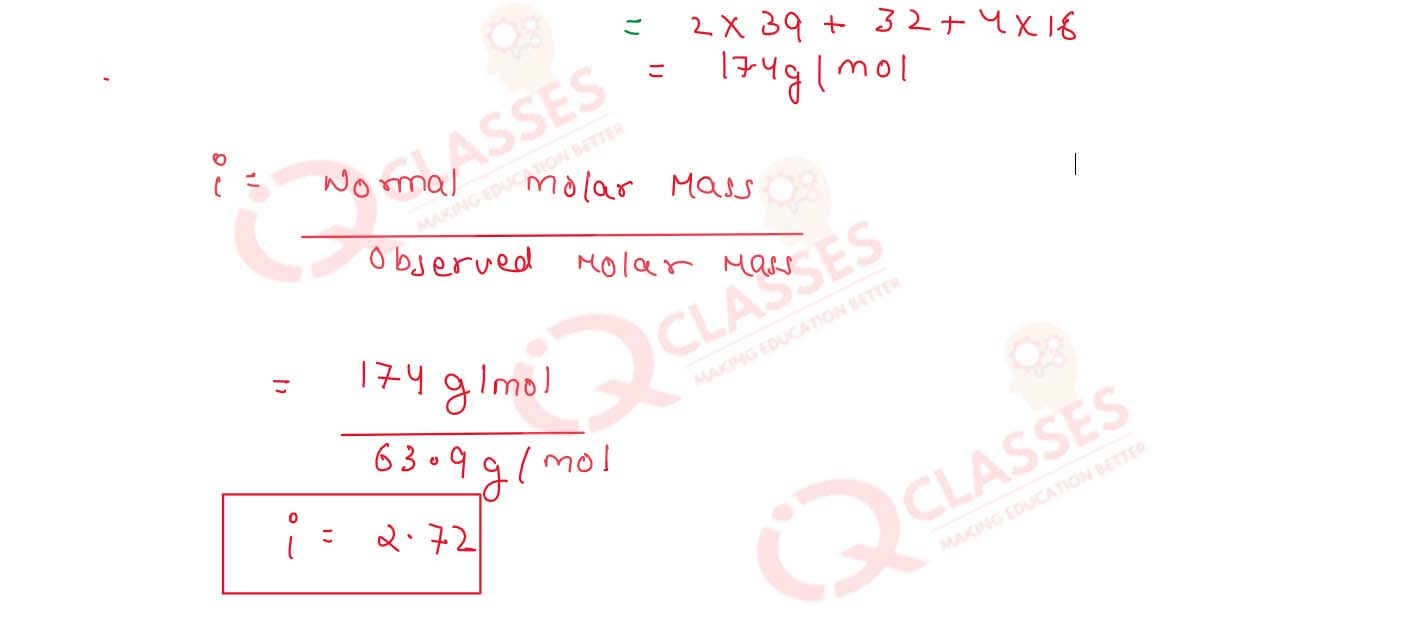 = 2 × 39 + 32 + 4 × 16
= 174g/mol
i = Normal Molar Mass
Observed Molar Mass
= 174 g/mol
63.9 g/mol
i = 2.72
iQ CLASSES
MAKING EDUCATION BETTER
iQ CLASSES
MAKING EDUCATION BETTER
iQ CLASSES
MAKING EDUCATION BETTER